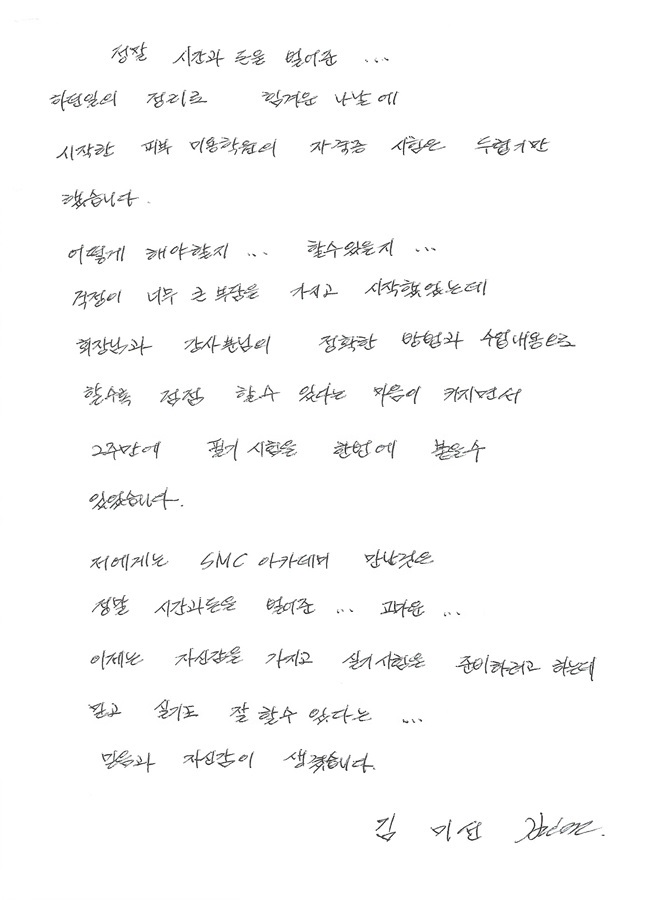 정말 시간과 돈을 벌어준 ...
하던일의 정리로 힘겨운 나날에
시작한 피부 미용학원의 자격증 시험은 두렵기만
했습니다.
어떻게 해야할지 ... 할수있을지 ...
걱정이 너무 큰 부담을 가지고 시작했었는데
회장님과 강사분님의 정확한 방법과 수업내용으로
할수록 점점 할수 있다는 마음이 커지면서
2주만에 필기 시험을 한번에 붙을수
있었습니다.
저에게는 SMC 아카데미 만난것은
정말 시간과돈을 벌어준 ... 고마운 ...
이제는 자신감을 가지고 실기시험을 준비하려고 하는데
믿고 실기도 잘 할수 있다는 ...
믿음과 자신감이 생겼습니다.
김 미선